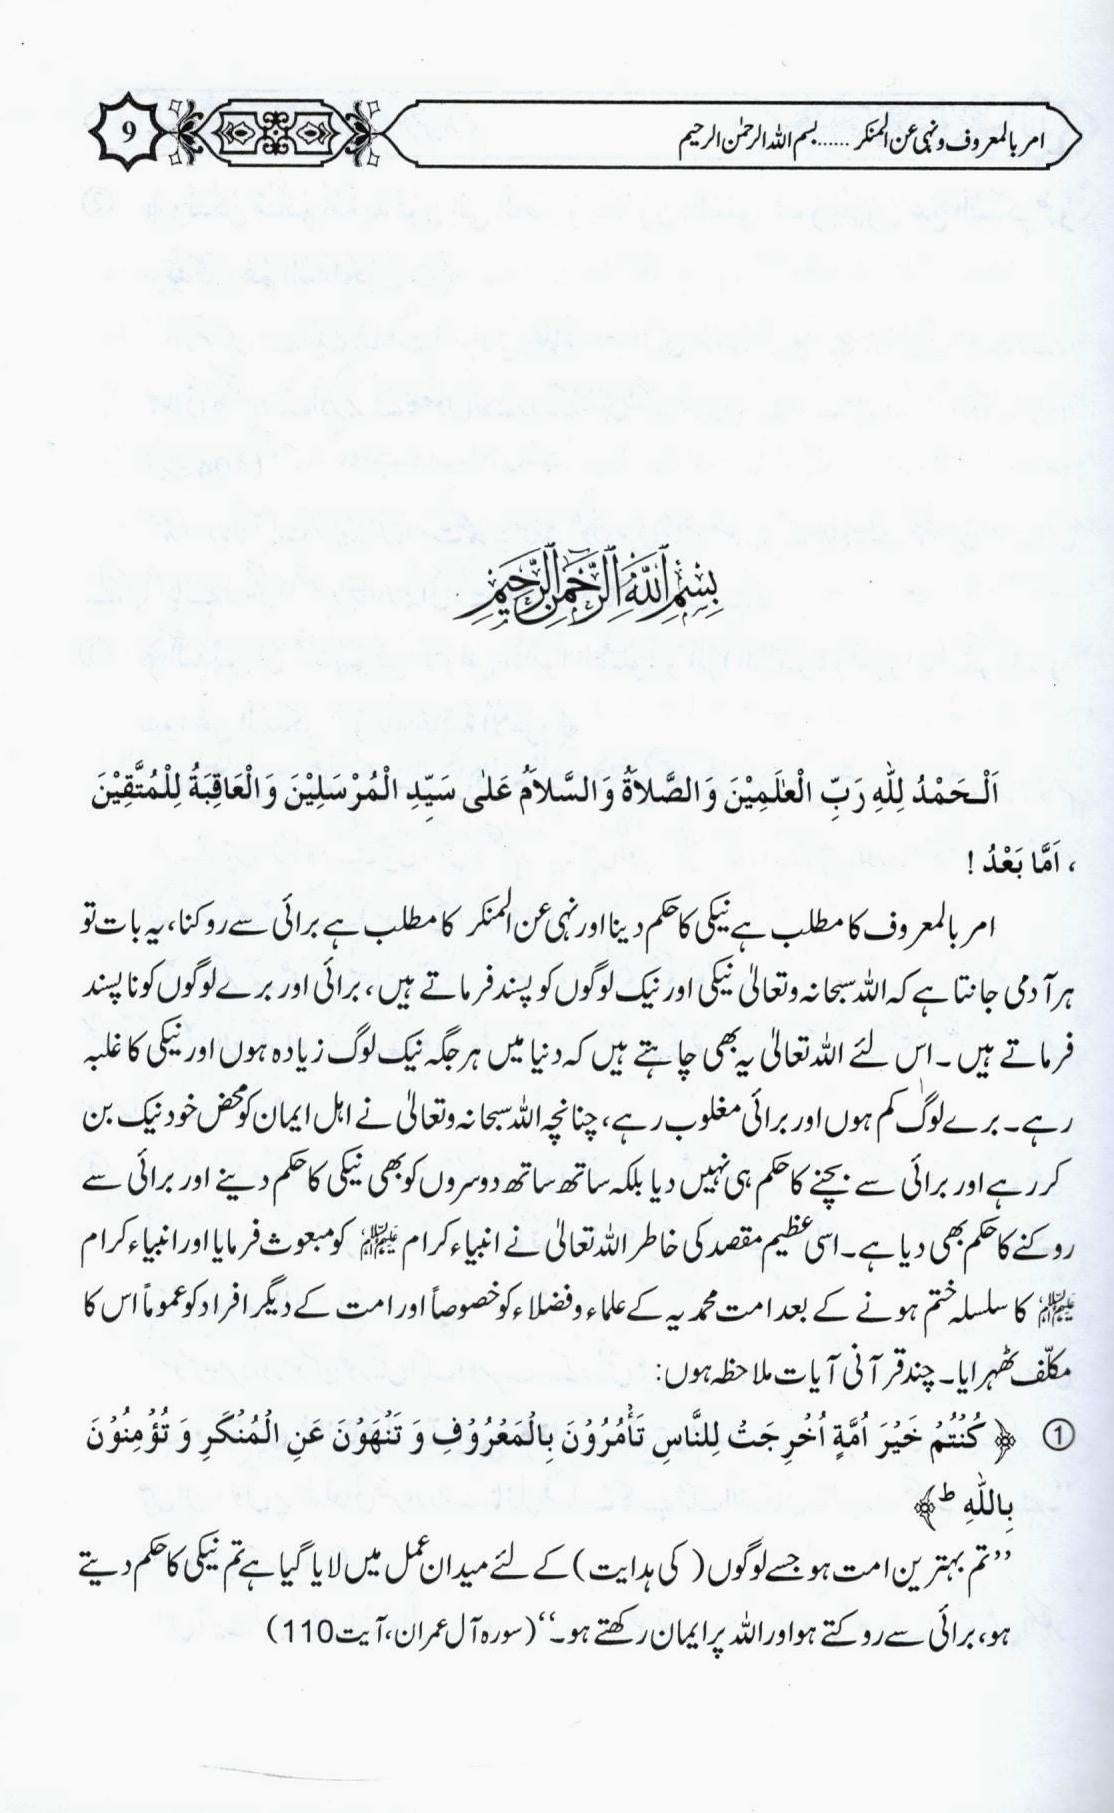 امر بالمعروف و نہی عن المنکر ...... بسم اللہ الرحمٰن الرحیم
9
بِسْمِ اللّٰهِ الرَّحْمٰنِ الرَّحِيْمِ
اَلْـحَمْدُ لِلّٰهِ رَبِّ الْعٰلَمِيْنَ وَالصَّلاَةُ وَالسَّلاَمُ عَلٰى سَيِّدِ الْمُرْسَلِيْنَ وَالْعَاقِبَةُ لِلْمُتَّقِيْنَ
، اَمَّا بَعْدُ !
امر بالمعروف کا مطلب ہے نیکی کا حکم دینا اور نہی عن المنکر کا مطلب ہے برائی سے روکنا، یہ بات تو
ہر آدمی جانتا ہے کہ اللہ سبحانہ و تعالیٰ نیکی اور نیک لوگوں کو پسند فرماتے ہیں، برائی اور برے لوگوں کو ناپسند
فرماتے ہیں۔ اس لئے اللہ تعالیٰ یہ بھی چاہتے ہیں کہ دنیا میں ہر جگہ نیک لوگ زیادہ ہوں اور نیکی کا غلبہ
رہے۔ برے لوگ کم ہوں اور برائی مغلوب رہے، چنانچہ اللہ سبحانہ و تعالیٰ نے اہل ایمان کو محض خود نیک بن
کر رہے اور برائی سے بچنے کا حکم ہی نہیں دیا بلکہ ساتھ ساتھ دوسروں کو بھی نیکی کا حکم دینے اور برائی سے
روکنے کا حکم بھی دیا ہے۔ اسی عظیم مقصد کی خاطر اللہ تعالیٰ نے انبیاء کرام کو مبعوث فرمایا اور انبیاء کرام
کا سلسلہ ختم ہونے کے بعد امت محمدیہ کے علماء و فضلاء کو خصوصاً اور امت کے دیگر افراد کو عموماً اس کا
مکلّف ٹھہرایا۔ چند قرآنی آیات ملاحظہ ہوں:
① ﴿ كُنْتُمْ خَيْرَ اُمَّةٍ اُخْرِجَتْ لِلنَّاسِ تَأْمُرُوْنَ بِالْمَعْرُوْفِ وَ تَنْهَوْنَ عَنِ الْمُنْكَرِ وَ تُؤْمِنُوْنَ
بِاللّٰهِ ط﴾
’’تم بہترین امت ہو جسے لوگوں (کی ہدایت) کے لئے میدان عمل میں لایا گیا ہے تم نیکی کا حکم دیتے
ہو، برائی سے روکتے ہو اور اللہ پر ایمان رکھتے ہو۔‘‘ (سورہ آل عمران، آیت 110)